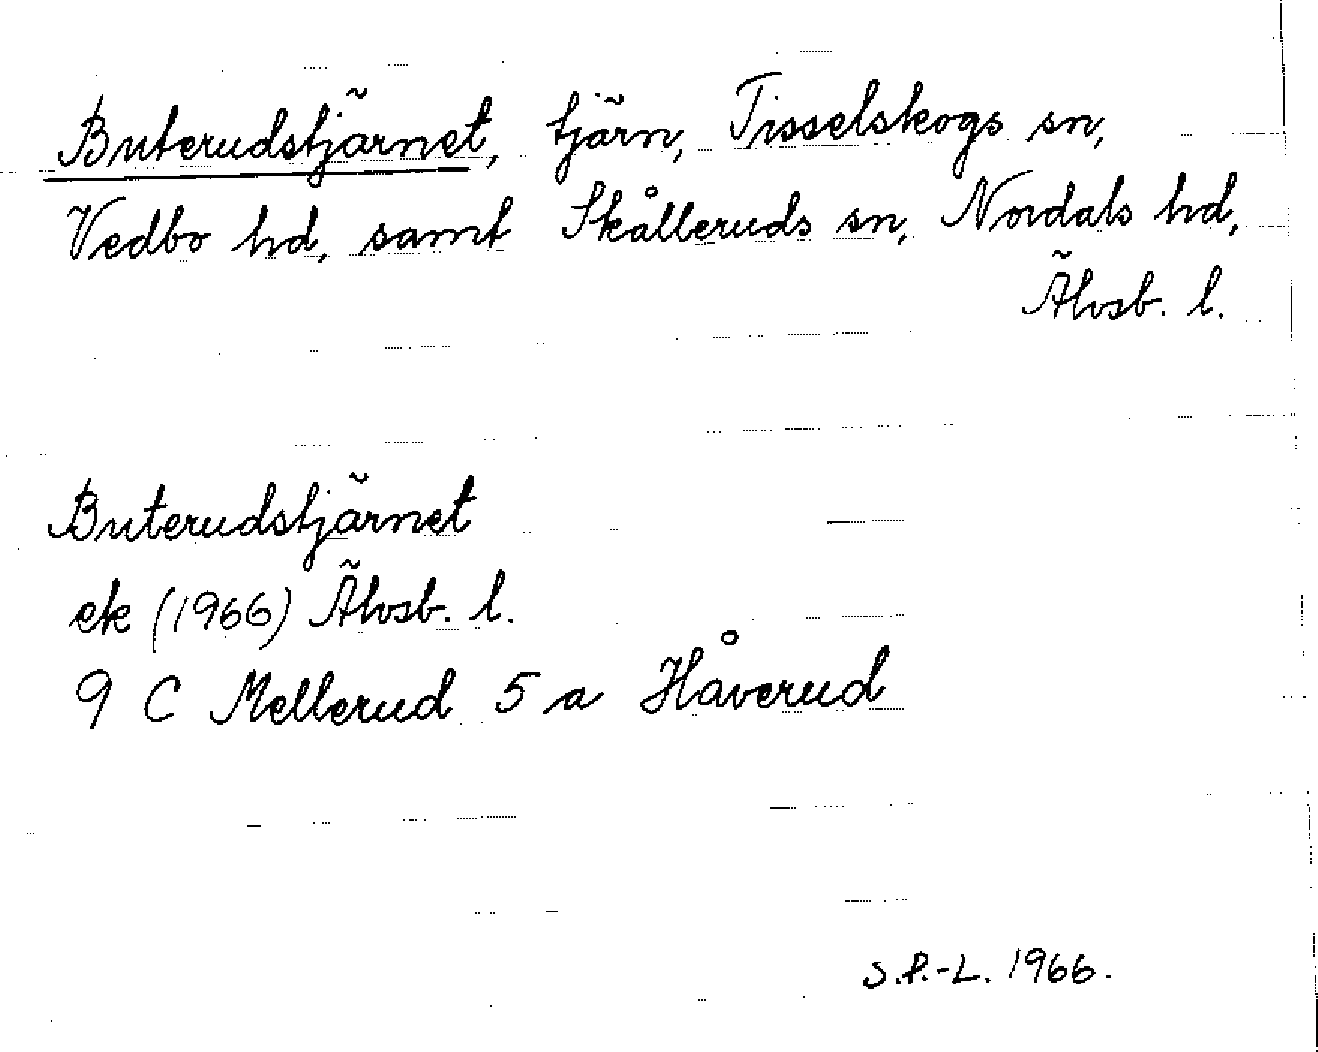 Buterudstjärnet, tjärn, Tisselskogs sn,
Vedbo hd, samt Skålleruds sn, Nordals hd,
Älvsb. l.
Buterudstjärnet
ek (1966) Älvsb. l.
9 C Mellerud 5 a Håverud
S.P.-L. 1966.